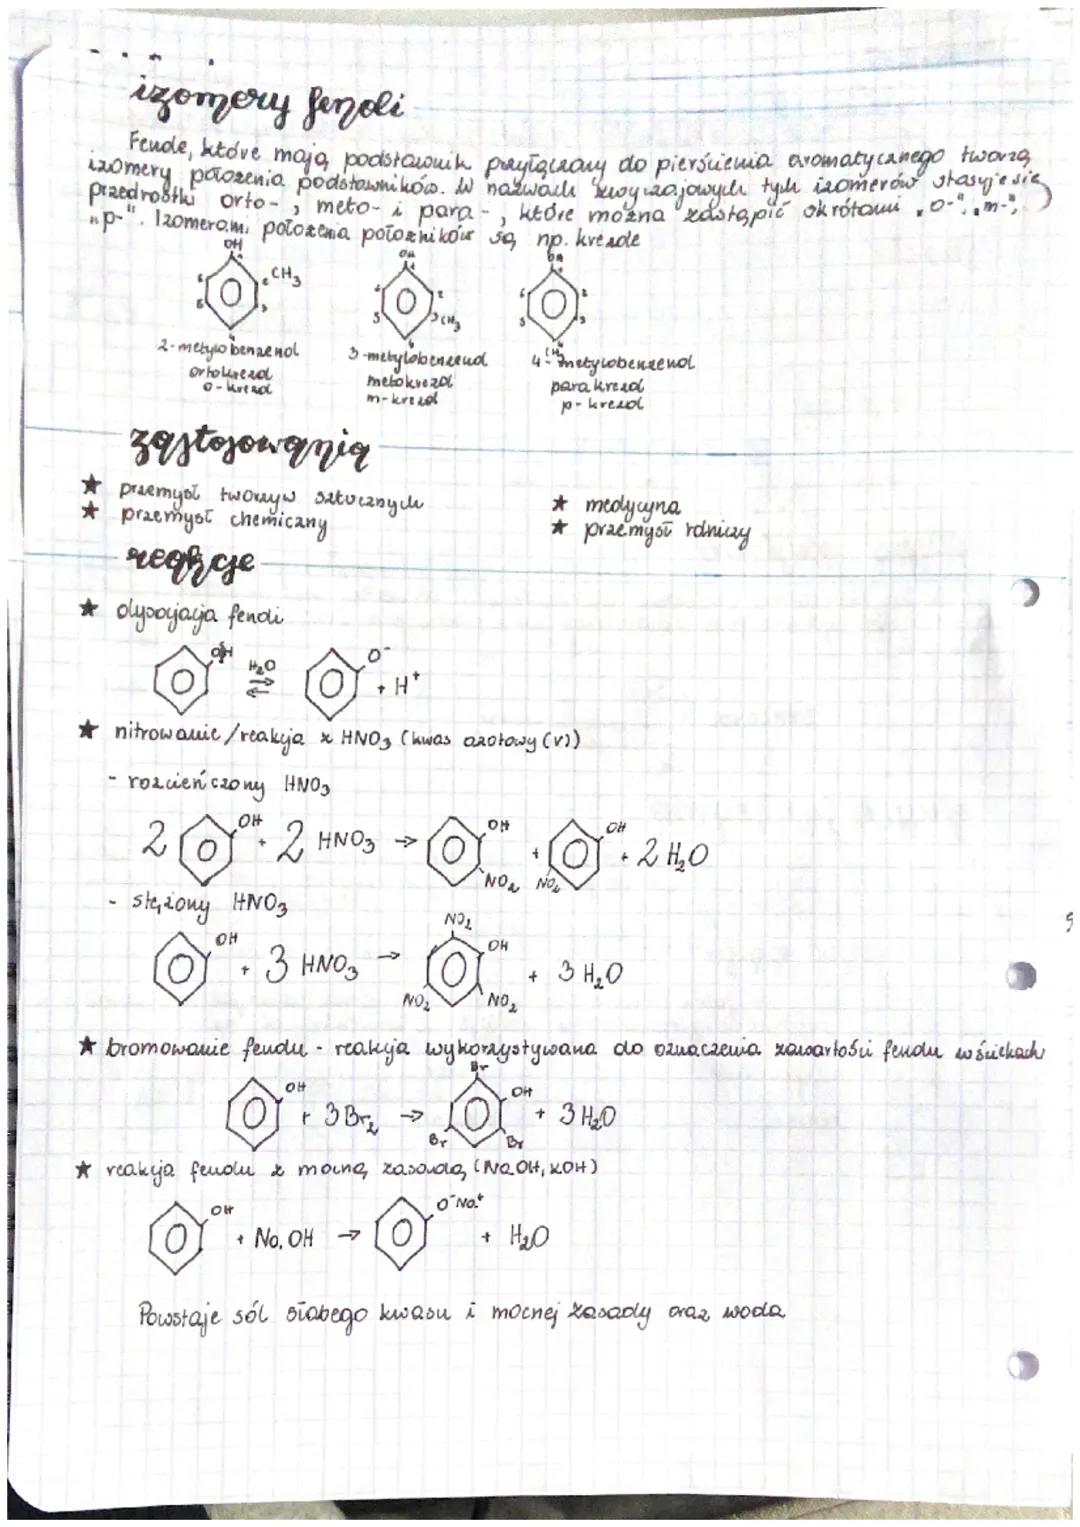 izomery fenoli
Fenole, które mają podstawnik przyłączony do pierścienia aromatycznego tworzą
izomery położenia podstawników. W nazwach zwyczajowych tych izomerów stosuje się
przedrostki orto-, meto- i para-, które można zastąpić skrótami „o-", „m-",
„p-". Izomerami położenia położników są np. krezole
OH OH OH
CH3 CH3 CH3
2-metylobenzenol 3-metylobenzenol 4-metylobenzenol
ortokrezol metokrezol parakrezol
o-krezol m-krezol p-krezol
zastosowania
★ przemysł tworzyw sztucznych ★ medycyna
★ przemysł chemiczny ★ przemysł rolniczy
reakcje
★ dysocjacja fenoli
OH H2O O- + H+
★ nitrowanie/reakcja z HNO3 (kwas azotowy (V))
- rozcieńczony HNO3
2 OH + 2 HNO3 → OH NO2 + OH NO2 + 2 H2O
- stężony HNO3
OH + 3 HNO3 → NO2 OH NO2 NO2 + 3 H2O
★ bromowanie fenolu - reakcja wykorzystywana do oznaczenia zawartości fenolu w ściekach
OH + 3Br2 → Br OH Br Br + 3 H2O
★ reakcja fenolu z mocną zasadą (NaOH, KOH)
OH + NaOH → O-Na+ + H2O
Powstaje sól słabego kwasu i mocnej zasady oraz woda